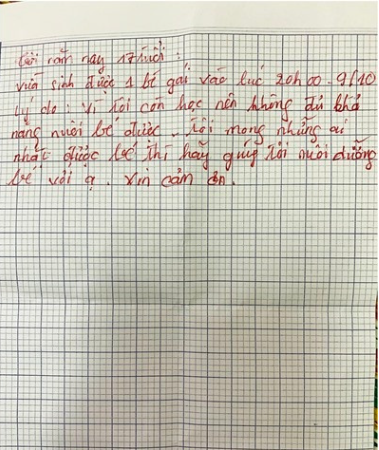 Tôi năm nay 17 tuổi :
vừa sinh được 1 bé gái vào lúc 20h00 - 9/10
Lý do : Vì tôi còn học nên không đủ khả
năng nuôi bé được . Tôi mong những ai
nhặt được bé thì hãy giúp tôi nuôi dưỡng
bé với ạ . Xin cảm ơn .